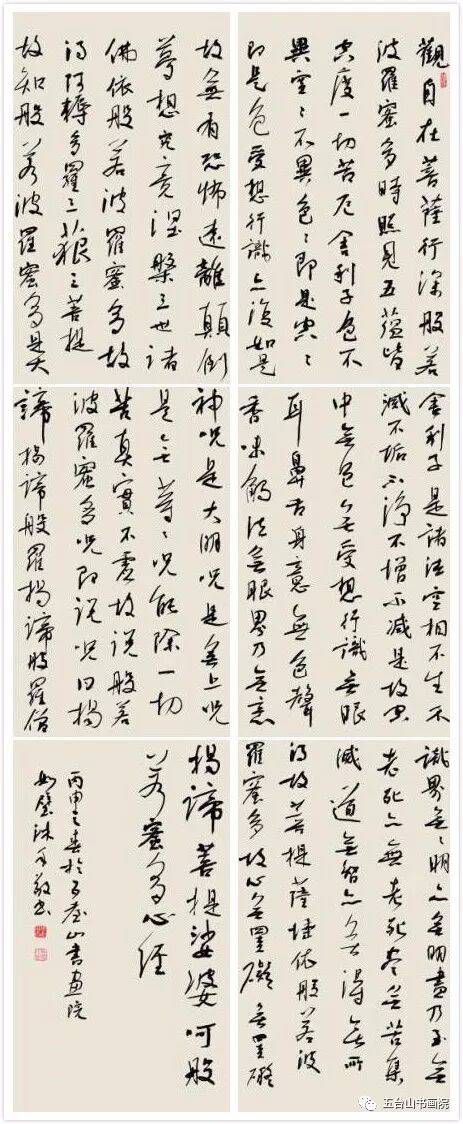 觀自在菩薩行深般若
波羅蜜多時照見五蘊皆
空度一切苦厄舍利子色不
異空〻不異色〻即是空〻
即是色受想行識亦復如是
舍利子是諸法空相不生不
滅不垢不淨不增不减是故空
中無色無受想行識無眼
耳鼻舌身意無色聲
香味觸法無眼界乃無意
識界無〻明亦無明盡乃至無
老死亦無老死盡無苦集
滅道無智亦無得無所
得故菩提薩埵依般若波
羅蜜多故心無罣礙無罣礙
故無有恐怖遠離顛倒
夢想究竟涅槃三世諸
佛依般若波羅蜜多故
得阿耨多羅三藐三菩提
故知般若波羅蜜多是大
神呪是大明呪是無上呪
是無等〻呪能除一切
苦真實不虛故說般若
波羅蜜多呪即說呪曰揭
諦揭諦般羅揭諦般羅僧
揭諦菩提娑婆呵般
若蜜多心經
丙申之春於五台山書畫院
沐手敬書
五台山书画院